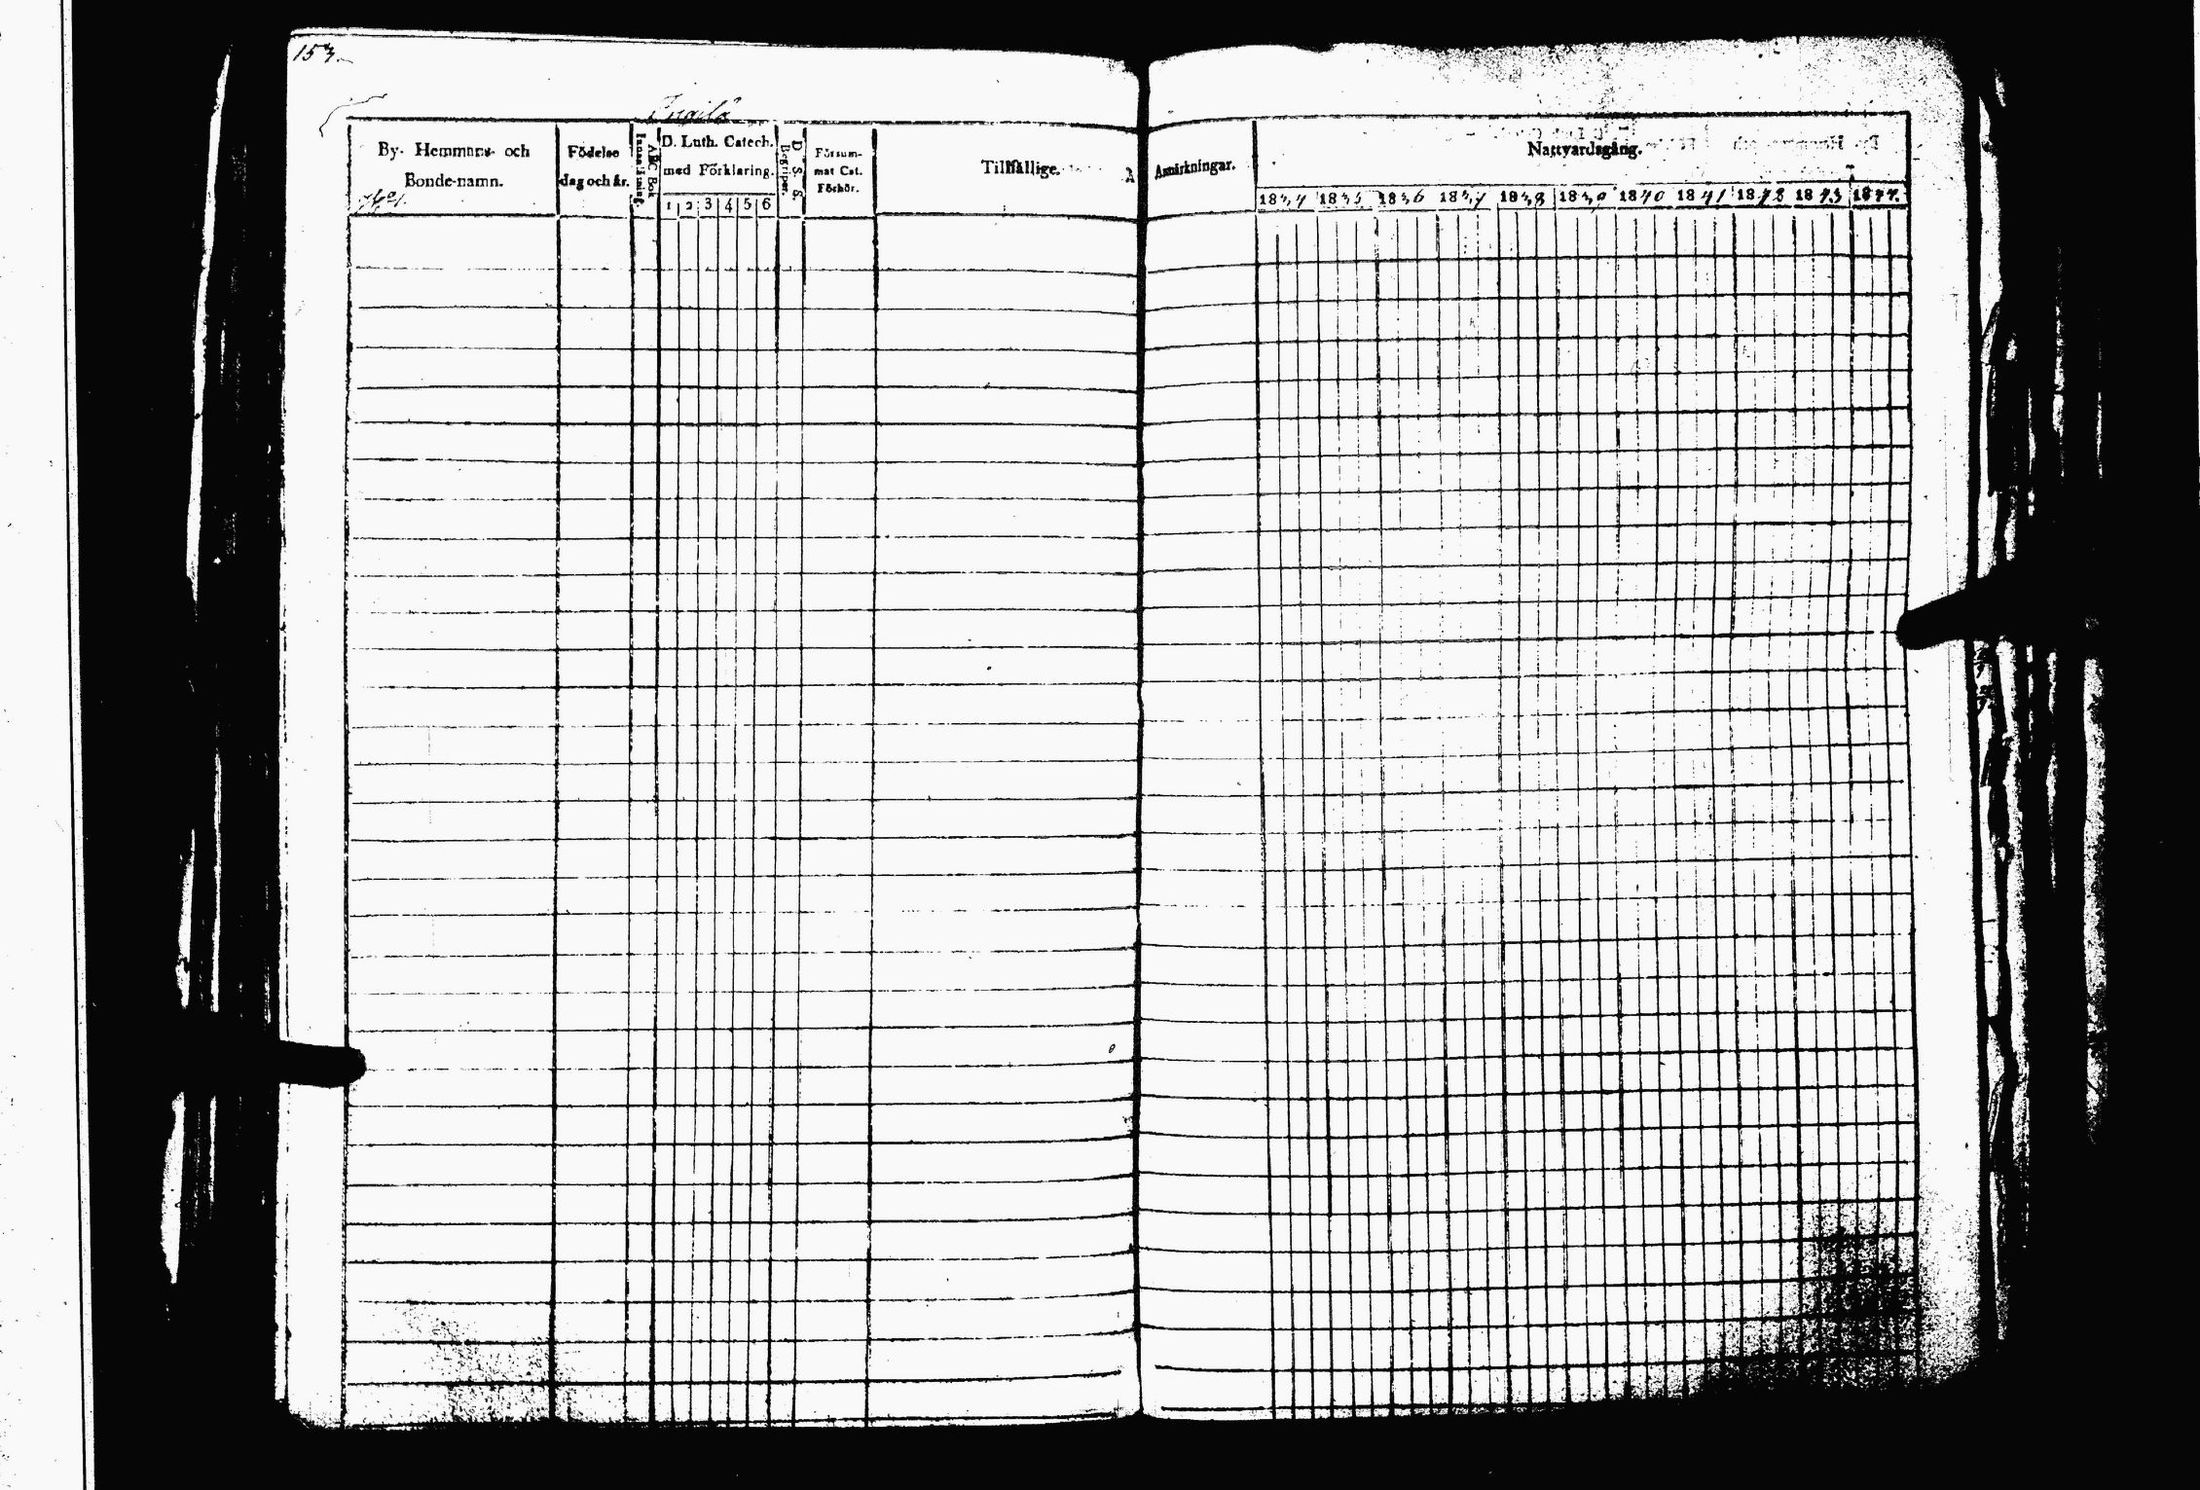 153.
By- Hemmans- och
Bonde-namn.
Födelse
dag och år.
ABC Bok
Innanläsning.
D. Luth. Catech.
med Förklaring.
1 2 3 4 5 6
D. S. S.
Begriper.
Försum-
mat Cat.
Förhör.
Tillfällige.
A
Anmärkningar.
Nattvardsgång.
1834 1835 1836 1837 1838 1839 1840 1841 1842 1843 1844.